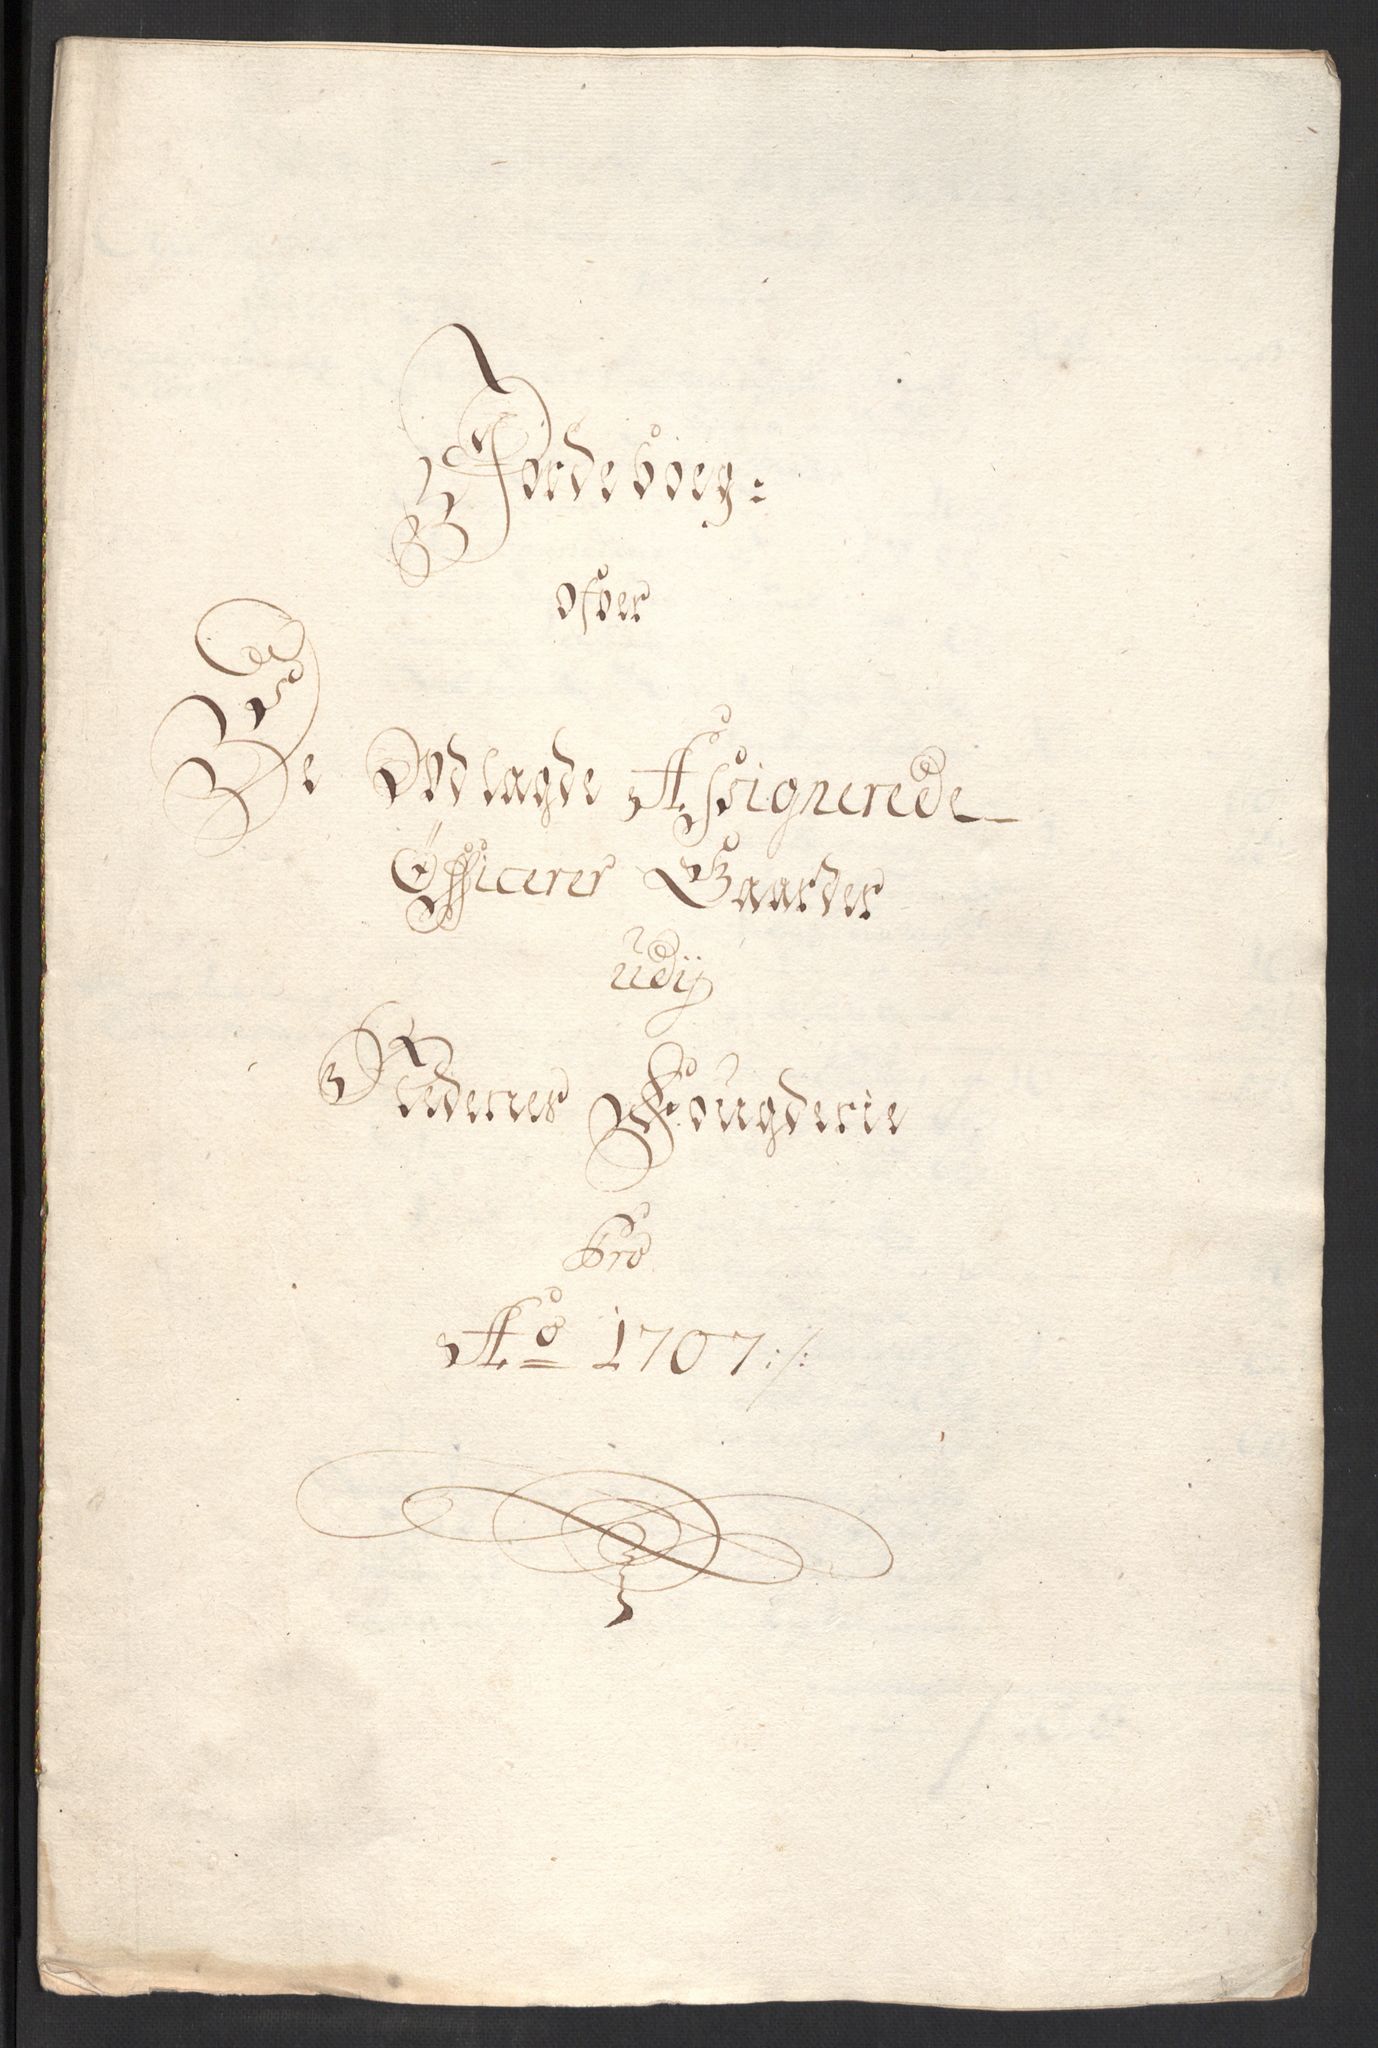 Jordeboeg:
ofver
De Udlagde Assignerede
Officerer Gaarder
udij
Nedenes Fougderie
Pro
Ao 1707:/: